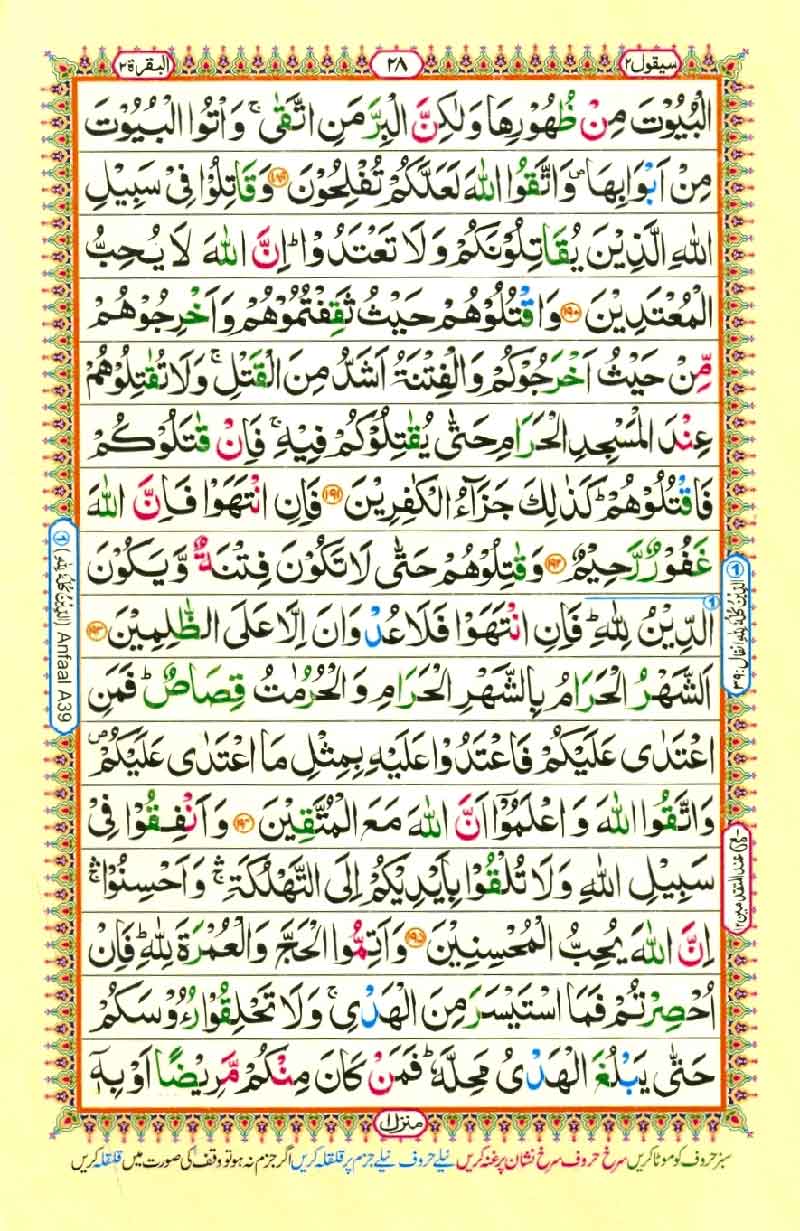 سیقول ۲
۲۸
البقرة ۲
الْبُيُوْتَ مِنْ ظُهُوْرِهَا وَلٰكِنَّ الْبِرَّ مَنِ اتَّقٰى ۚ وَاْتُوا الْبُيُوْتَ
مِنْ اَبْوَابِهَا ۪ وَاتَّقُوا اللّٰهَ لَعَلَّكُمْ تُفْلِحُوْنَ ﴿۱۸۹﴾ وَقَاتِلُوْا فِىْ سَبِيْلِ
اللّٰهِ الَّذِيْنَ يُقَاتِلُوْنَكُمْ وَلَا تَعْتَدُوْا ؕ اِنَّ اللّٰهَ لَا يُحِبُّ
الْمُعْتَدِيْنَ ﴿۱۹۰﴾ وَاقْتُلُوْهُمْ حَيْثُ ثَقِفْتُمُوْهُمْ وَاَخْرِجُوْهُمْ
مِّنْ حَيْثُ اَخْرَجُوْكُمْ وَالْفِتْنَةُ اَشَدُّ مِنَ الْقَتْلِ ۚ وَلَا تُقٰتِلُوْهُمْ
عِنْدَ الْمَسْجِدِ الْحَرَامِ حَتّٰى يُقٰتِلُوْكُمْ فِيْهِ ۚ فَاِنْ قٰتَلُوْكُمْ
فَاقْتُلُوْهُمْ ؕ كَذٰلِكَ جَزَآءُ الْكٰفِرِيْنَ ﴿۱۹۱﴾ فَاِنِ انْتَهَوْا فَاِنَّ اللّٰهَ
غَفُوْرٌ رَّحِيْمٌ ﴿۱۹۲﴾ وَقٰتِلُوْهُمْ حَتّٰى لَا تَكُوْنَ فِتْنَةٌ وَّيَكُوْنَ
الدِّيْنُ لِلّٰهِ ؕ فَاِنِ انْتَهَوْا فَلَا عُدْوَانَ اِلَّا عَلَى الظّٰلِمِيْنَ ﴿۱۹۳﴾
اَلشَّهْرُ الْحَرَامُ بِالشَّهْرِ الْحَرَامِ وَالْحُرُمٰتُ قِصَاصٌ ؕ فَمَنِ
اعْتَدٰى عَلَيْكُمْ فَاعْتَدُوْا عَلَيْهِ بِمِثْلِ مَا اعْتَدٰى عَلَيْكُمْ ۪
وَاتَّقُوا اللّٰهَ وَاعْلَمُوْٓا اَنَّ اللّٰهَ مَعَ الْمُتَّقِيْنَ ﴿۱۹۴﴾ وَاَنْفِقُوْا فِىْ
سَبِيْلِ اللّٰهِ وَلَا تُلْقُوْا بِاَيْدِيْكُمْ اِلَى التَّهْلُكَةِ ۛ وَاَحْسِنُوْا ۛ
اِنَّ اللّٰهَ يُحِبُّ الْمُحْسِنِيْنَ ﴿۱۹۵﴾ وَاَتِمُّوا الْحَجَّ وَالْعُمْرَةَ لِلّٰهِ ؕ فَاِنْ
اُحْصِرْتُمْ فَمَا اسْتَيْسَرَ مِنَ الْهَدْىِ ۚ وَلَا تَحْلِقُوْا رُءُوْسَكُمْ
حَتّٰى يَبْلُغَ الْهَدْىُ مَحِلَّهٗ ؕ فَمَنْ كَانَ مِنْكُمْ مَّرِيْضًا اَوْ بِهٖٓ
الدِّيْنُ كُلُّهٗ لِلّٰهِ انفال: ۳۹
عند المتقدمين ۱۲
(الدِّيْنُ كُلُّهٗ لِلّٰهِ) Anfaal A39
منزل ۱
سبز حروف کو موٹا کریں سرخ حروف سرخ نشان پر غنہ کریں نیلے حروف نیلے جزم پر قلقلہ کریں اگر جزم نہ ہو تو وقف کی صورت میں قلقلہ کریں